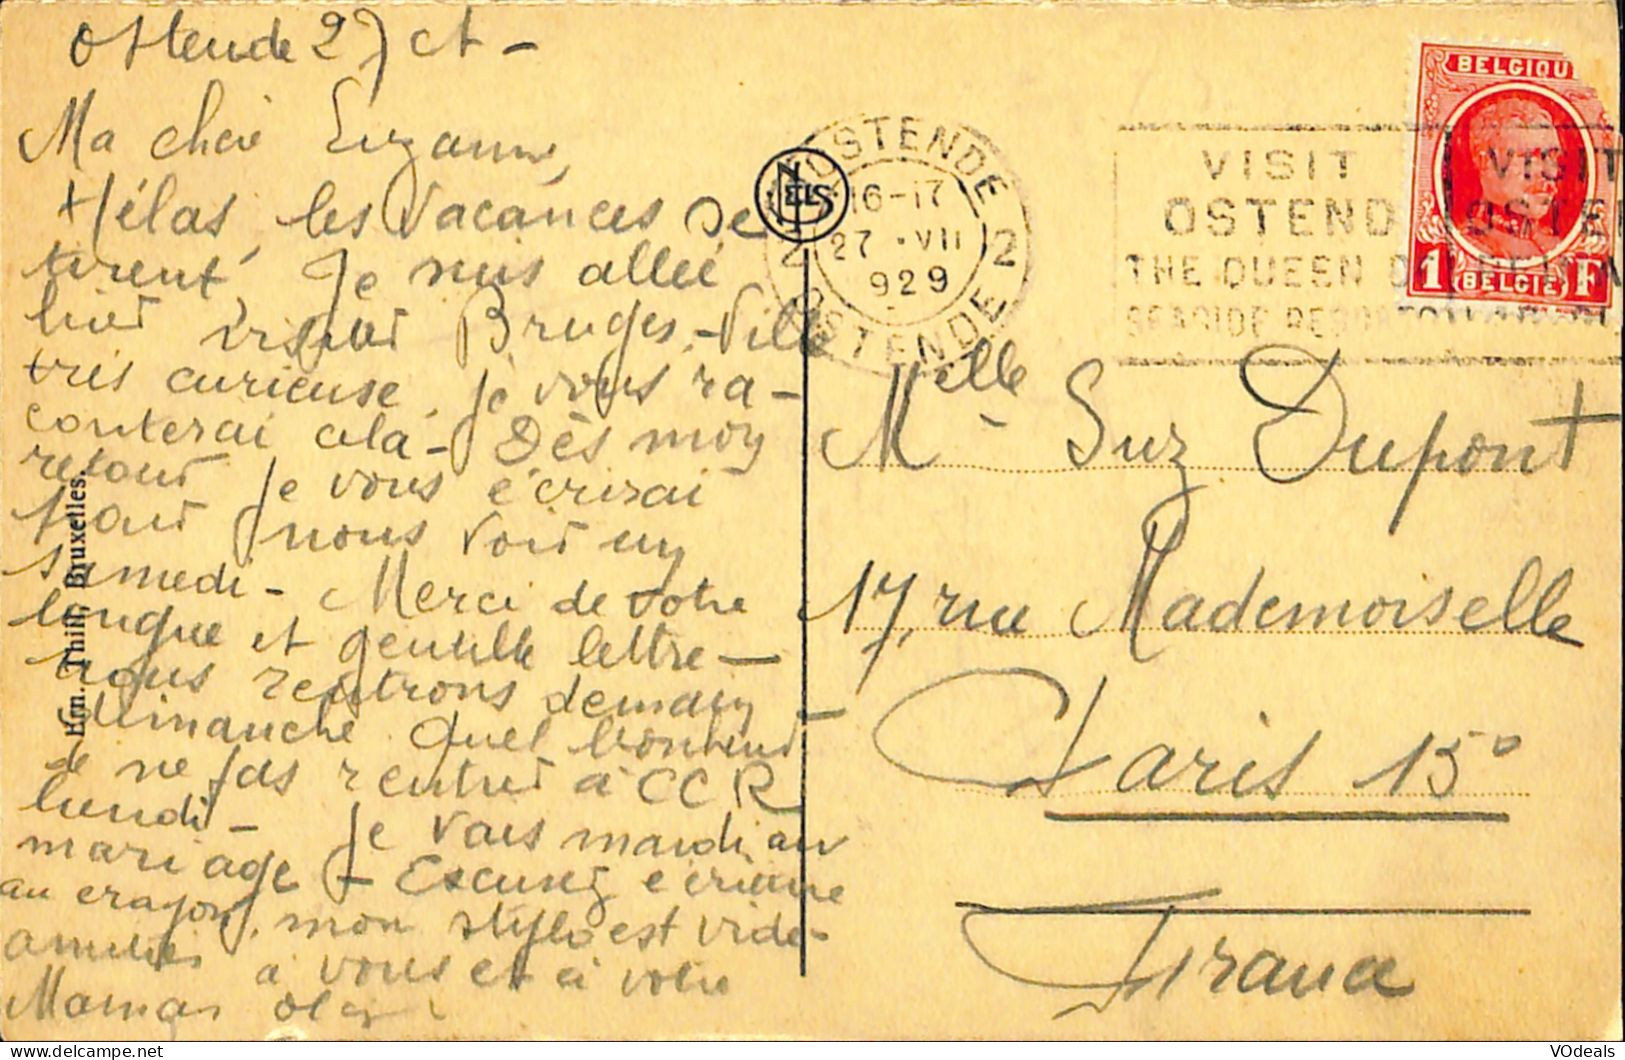 Ostende 27 ct -
Ma chère Suzanne,
Hélas, les vacances se
tirent, Je suis allée
hier visiter Bruges, Ville
très curieuse, je vous ra-
conterai cela - Dès mon
retour je vous écrirai
pour nous voir un
samedi - Merci de votre
longue et gentille lettre -
Nous rentrons demain
dimanche Quel bonheur
de ne pas rentrer à CCR
lundi - Je vais mardi au
mariage - Excusez écriture
au crayon, mon stylo est vide -
amitiés à vous et à votre
Maman
Ern. Thill, Bruxelles.
NELS
OOSTENDE
16-17
27 • VII
929
2 2
OSTENDE
VISIT
OSTEND
THE QUEEN OF
SEASIDE RESORTS
VISIT
OSTEN
BELGIQU
1 F
BELGIË
Melle Suz Dupont
17, rue Mademoiselle
Paris 15°
France
VOdeals